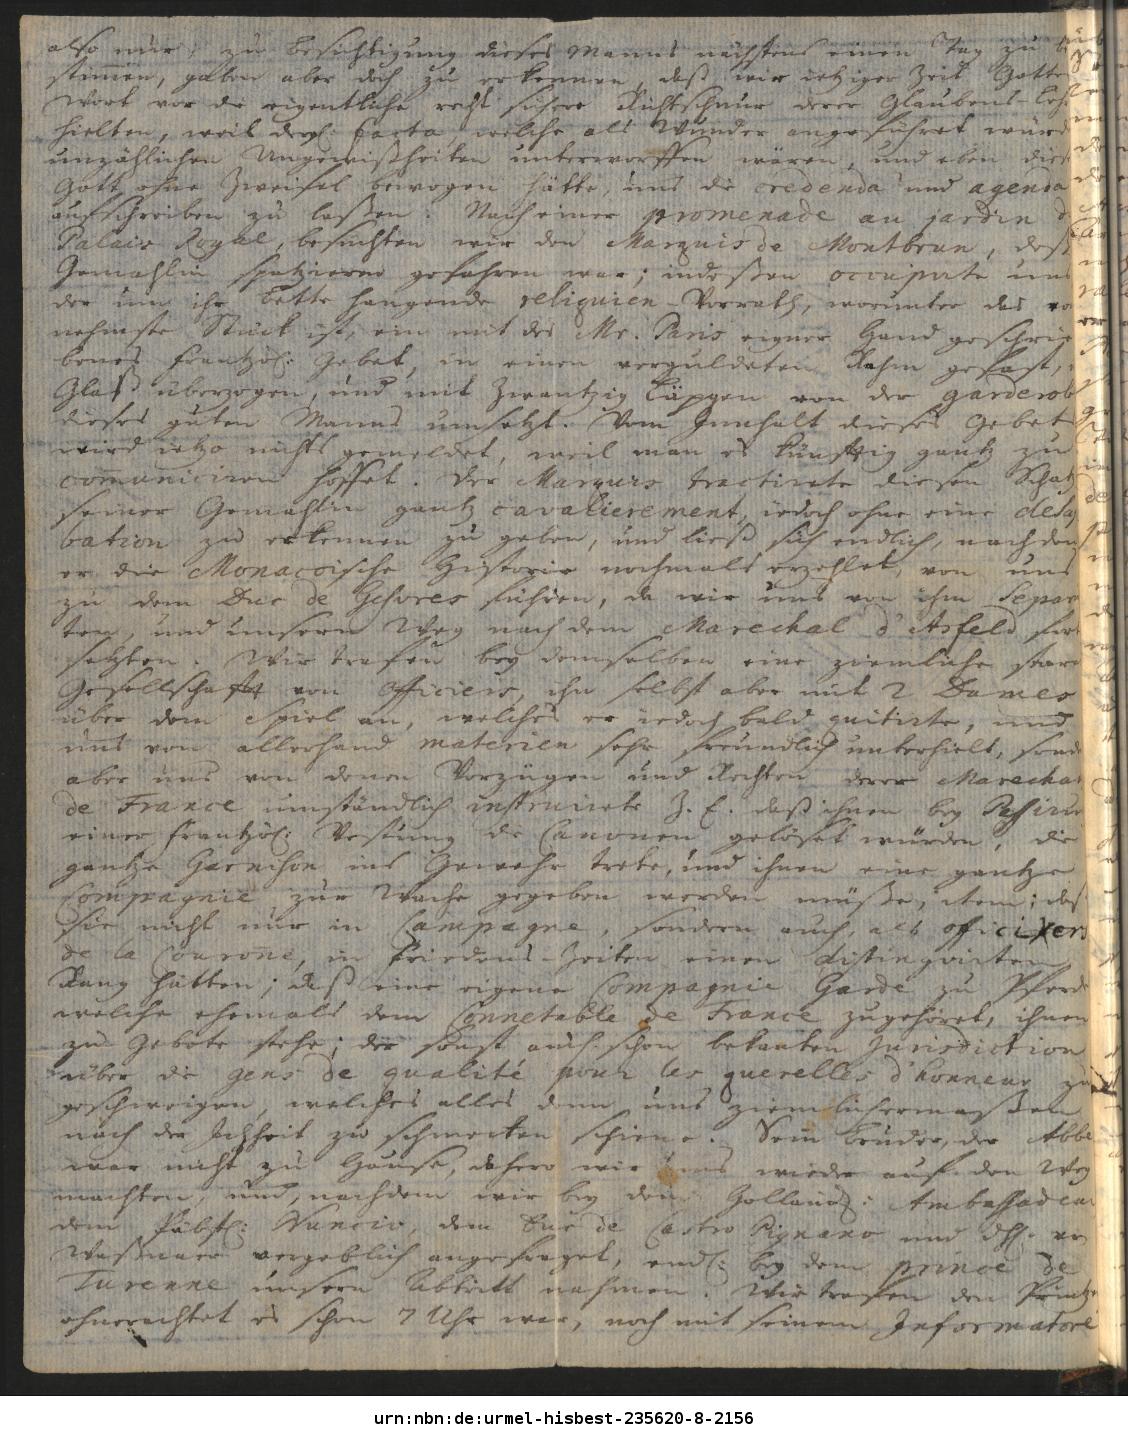 also nur, zu Besichtigung dieses Manns nächstens einen Tag zu be
stimmen, gaben aber doch zu erkennen, daß wir ietziger Zeit Gottes
Wort vor die eigentliche recht sichere Richtschnur derer Glaubens-Leh
hielten, weil dergl. facta welche als Wunder angeführet würd
unzählichen Ungewißheiten unterworffen wären, und eben dies
Gott ohne Zweifel bewogen hätte, uns die credenda und agenda
aufschreiben zu laßen. Nach einer promenade au jardin d
Palais Royal, besuchten wir den Marquis de Montbrun, deß
Gemahlin spatzieren gefahren war; indeßen occupirte uns
der um ihr Bette hangende reliquien-Vorrath, worunter das vo
nehmste Stück ist, ein mit des Mr. Paris eigner Hand geschrie
benes frantzös: Gebet, in einen verguldeten Rahm gefast,
Glaß überzogen, und mit zwantzig Läpgen von der garderob
dieses guten Manns umsetzt. Vom Innhalt dieses Gebets
wird ietzo nichts gemeldet, weil man es künfftig gantz zu
com̄uniciren hoffet. Der Marquis tractirete diesen Schatz
seiner Gemahlin gantz cavalierement, iedoch ohne eine desap
bation zu erkennen zu geben, und ließ sich endlich, nachdem
er die Monacoische Historie nochmals erzehlet, von uns
zu dem Duc de Gesvres führen, da wir uns von ihm separ
ten, und unsern Weg nach dem Marechal d'Asfeld fort
setzten. Wir trafen bey demselben eine ziemliche starc
Gesellschafft von Officiers, ihn selbst aber mit 2 Dames
über dem Spiel an, welches er iedoch bald quitirte, und
uns von allerhand materien sehr freundlich unterhielt, sond
aber uns von denen Vorzügen und Rechten derer Marecha
de France umständlich instruirete Z. E. daß ihnen bey Passiru
einer frantzös: Vestung die Canonen gelöset würden, die
gantze Garnison ins Gewehr trete, und ihnen eine gantze
Compagnie zur Wache gegeben werden müße, item; daß
sie nicht nur in Campagne, sondern auch, als officixers
de la Couron̄e, in Friedens-Zeiten einen distinguirten
Rang hätten; daß eine eigene Compagnie Garde zu Pferde
welche ehemals dem Connetable de France zugehöret, ihnen
zu Gebote stehe; der sonst auch schon bekanten Jurisdiction
über die gens de qualité pour les querelles d'honneur zu
geschweigen, welches alles denn uns ziemlichermaßen
nach der zu schmecken schiene. Sein Bruder, der Abbé
war nicht zu Hause, dahero wir uns wieder auf den Weg
machten, und, nachdem wir bey dem Holländ: Ambassadeu
dem Päbstl: Nuncio, dem Duc de Castro Pignano und
Waßenaer vergeblich angefraget, endl: bey dem prince de
Turenne unsern Abtritt nahmen. Wir trafen den Printz
ohnerachtet es schon 7 Uhr war, noch mit seinem Informatore
urn:nbn:de:urmel-hisbest-235620-8-2156